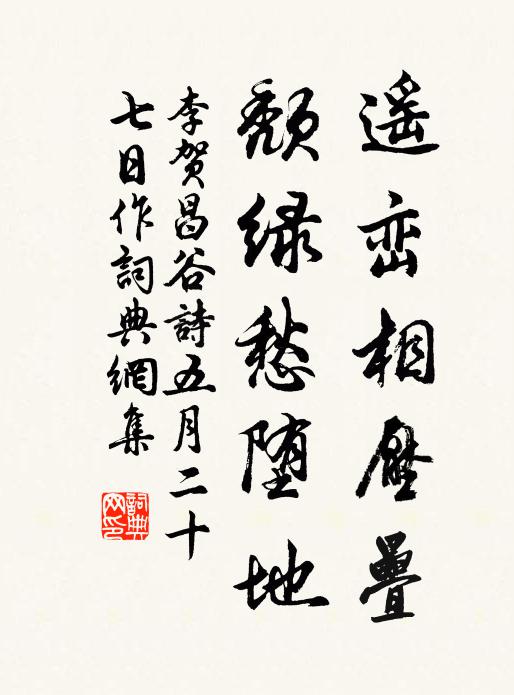 遥峦相壓疊
颓緑愁堕地
李賀昌谷詩五月二十
七日作詞典網集
詞典
网印